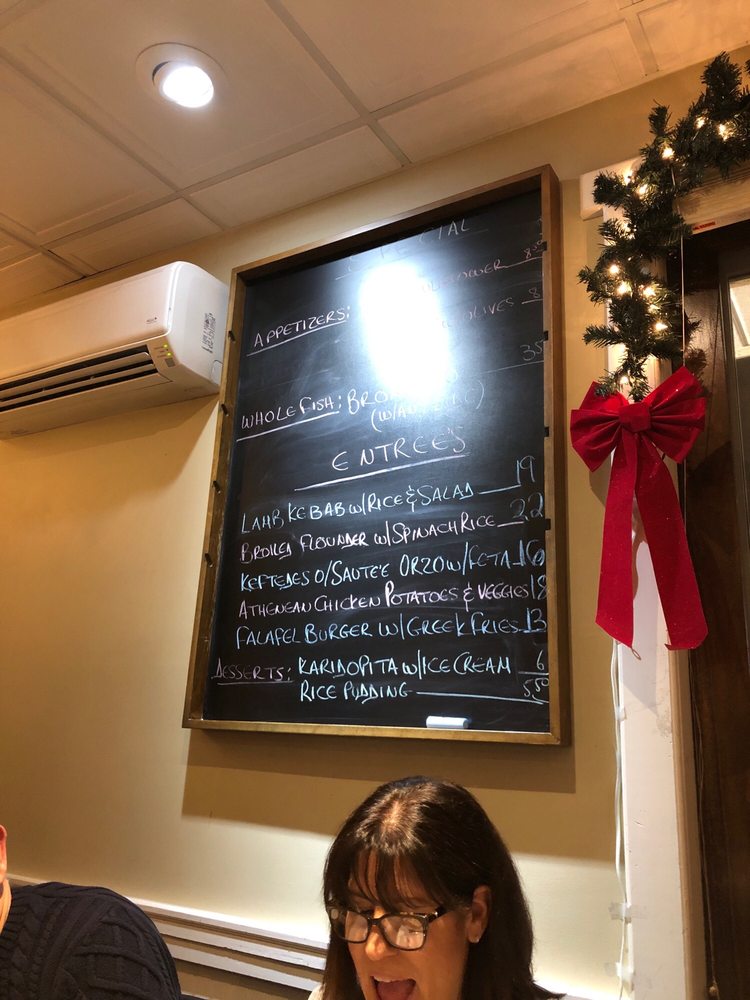 SPECIAL
APPETIZERS:
OLIVES 8
WHOLE FISH: 35
ENTREE'S
LAMB KEBAB W/RICE & SALAD 19
BROILED FLOUNDER W/SPINACH RICE 22
KEFTEDES O/SAUTE'E ORZO W/FETA 16
ATHENEAN CHICKEN POTATOES & VEGGIES 18
FALAFEL BURGER W/GREEK FRIES 13
DESSERTS: KARIDOPITA W/ICE CREAM 6
RICE PUDDING 5.50